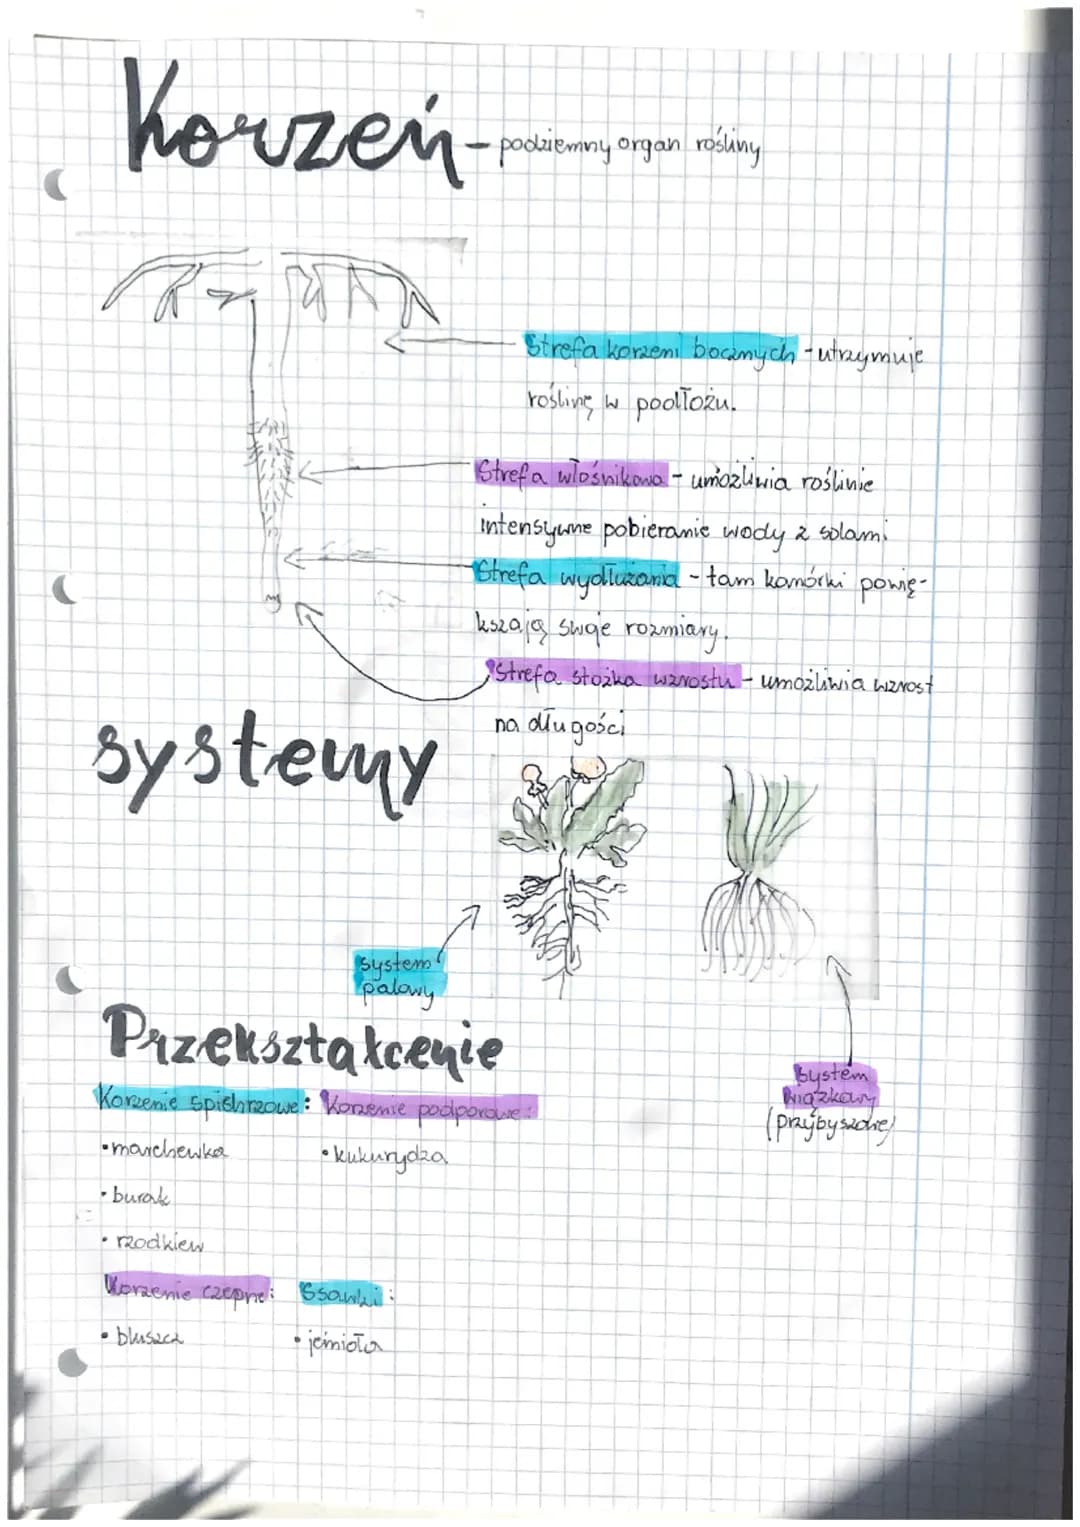 Korzeń - podziemny organ rośliny
Strefa korzeni bocznych - utrzymuje
roślinę w podłożu.
Strefa włośnikowa - umożliwia roślinie
intensywne pobieranie wody z solami
Strefa wydłużania - tam komórki powię-
kszają swoje rozmiary.
Strefa stożka wzrostu - umożliwia wzrost
na długości
systemy
system
palowy
system
wiązkowy
(przybyszowe)
Przekształcenie
Korzenie spichrzowe: Korzenie podporowe:
• marchewka • kukurydza
• burak
• rzodkiew
Korzenie czepne: Ssawki:
• bluszcz • jemioła